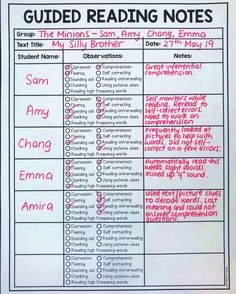 GUIDED READING NOTES
Group: The Minions - Sam, Amy, Chang, Emma
Text Title: My Silly Brother Date: 27th May 19
Student Name: Observations: Notes:
Sam
Expression Comprehension
Fluency Self correcting
Sounding out Reading on/rereading
Chunking Using pictures clues
Reading high frequency words
Great inferential
comprehension.
Amy
Expression Comprehension
Fluency Self correcting
Sounding out Reading on/rereading
Chunking Using pictures clues
Reading high frequency words
Self monitors while
reading. Reread to
self-correct errors.
Need to work on
comprehension
Chang
Expression Comprehension
Fluency Self correcting
Sounding out Reading on/rereading
Chunking Using pictures clues
Reading high frequency words
Frequently looked at
pictures to help with
words. Did not self-
correct on a few errors.
Emma
Expression Comprehension
Fluency Self correcting
Sounding out Reading on/rereading
Chunking Using pictures clues
Reading high frequency words
Automatically read this
weeks sight words.
mixed up "q" sound.
Amira
Expression Comprehension
Fluency Self correcting
Sounding out Reading on/rereading
Chunking Using pictures clues
Reading high frequency words
used text/picture clues
to decode words. Lost
meaning and could not
answer comprehension
questions.
Expression Comprehension
Fluency Self correcting
Sounding out Reading on/rereading
Chunking Using pictures clues
Reading high frequency words